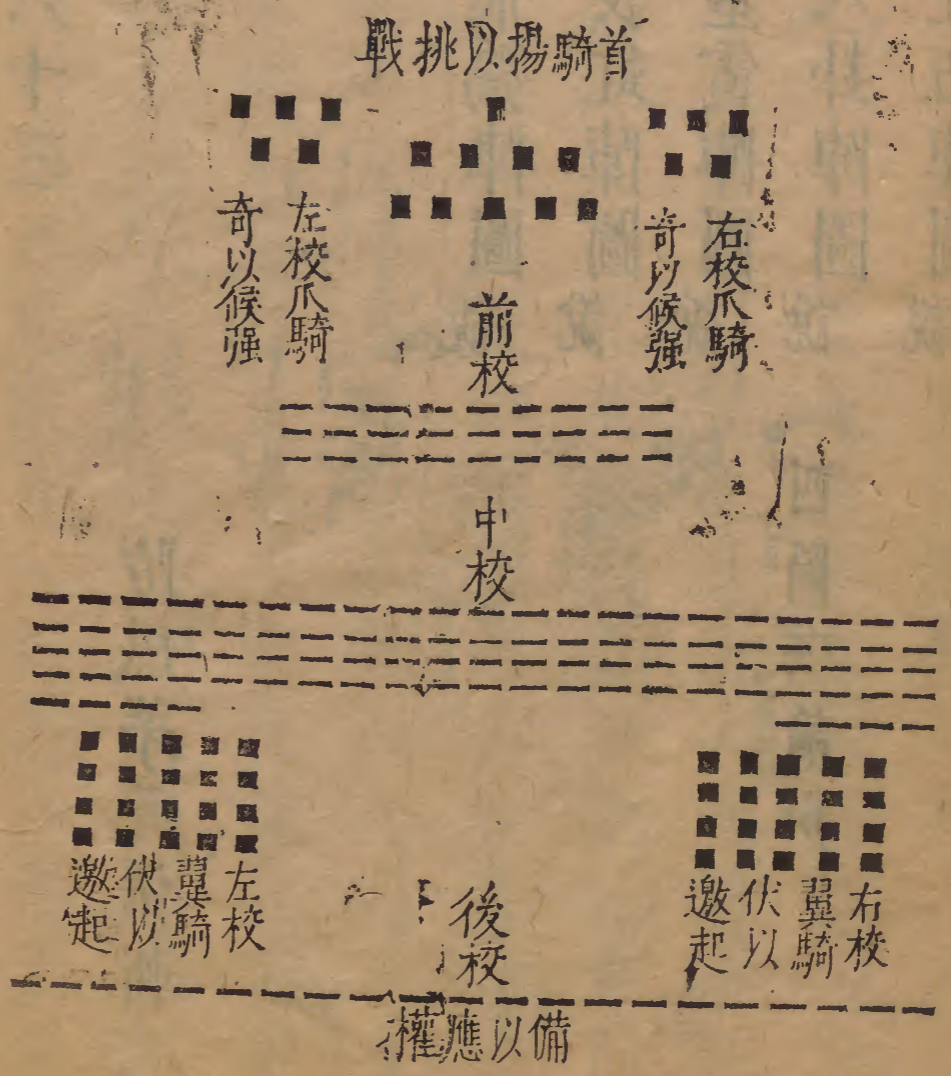 首騎揚以挑戰
右校爪騎
奇以候强
前校
左校爪騎
奇以候强
中校
右校
翼騎
伏以
邀起
後校
左校
翼騎
伏以
邀起
備以應權